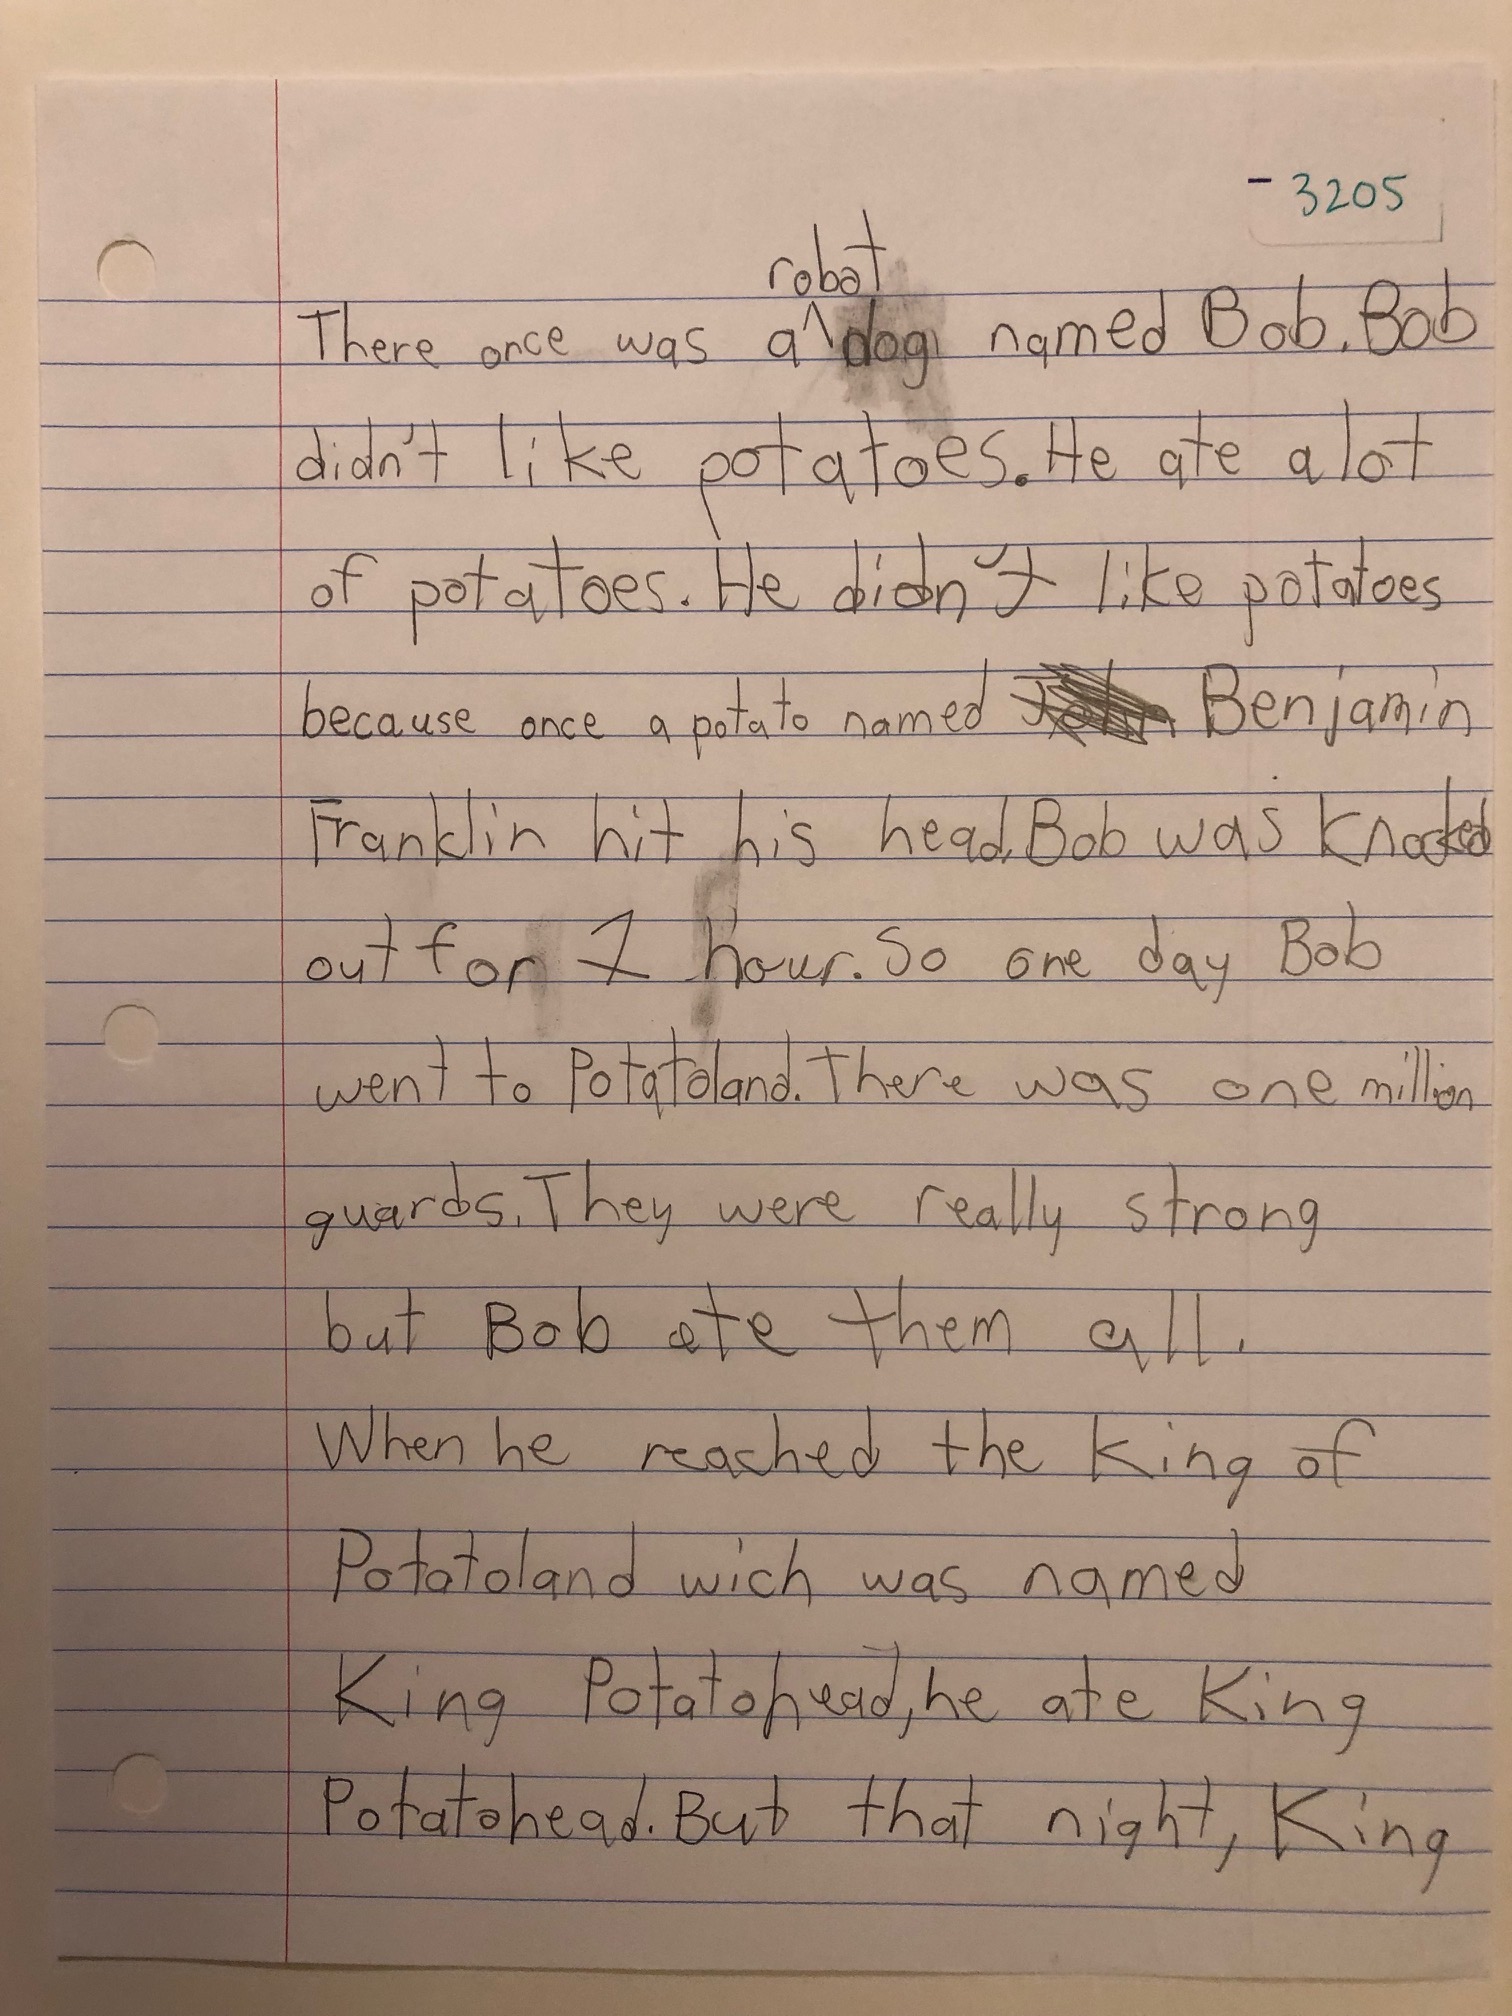 - 3205
robot
There once was a ^ dog named Bob. Bob
didn't like potatoes. He ate a lot
of potatoes. He didn't like potatoes
because once a potato named Benjamin
Franklin hit his head. Bob was knocked
out for 1 hour. So one day Bob
went to Potatoland. There was one million
guards. They were really strong
but Bob ate them all.
When he reached the King of
Potatoland wich was named
King Potatohead, he ate King
Potatohead. But that night, King